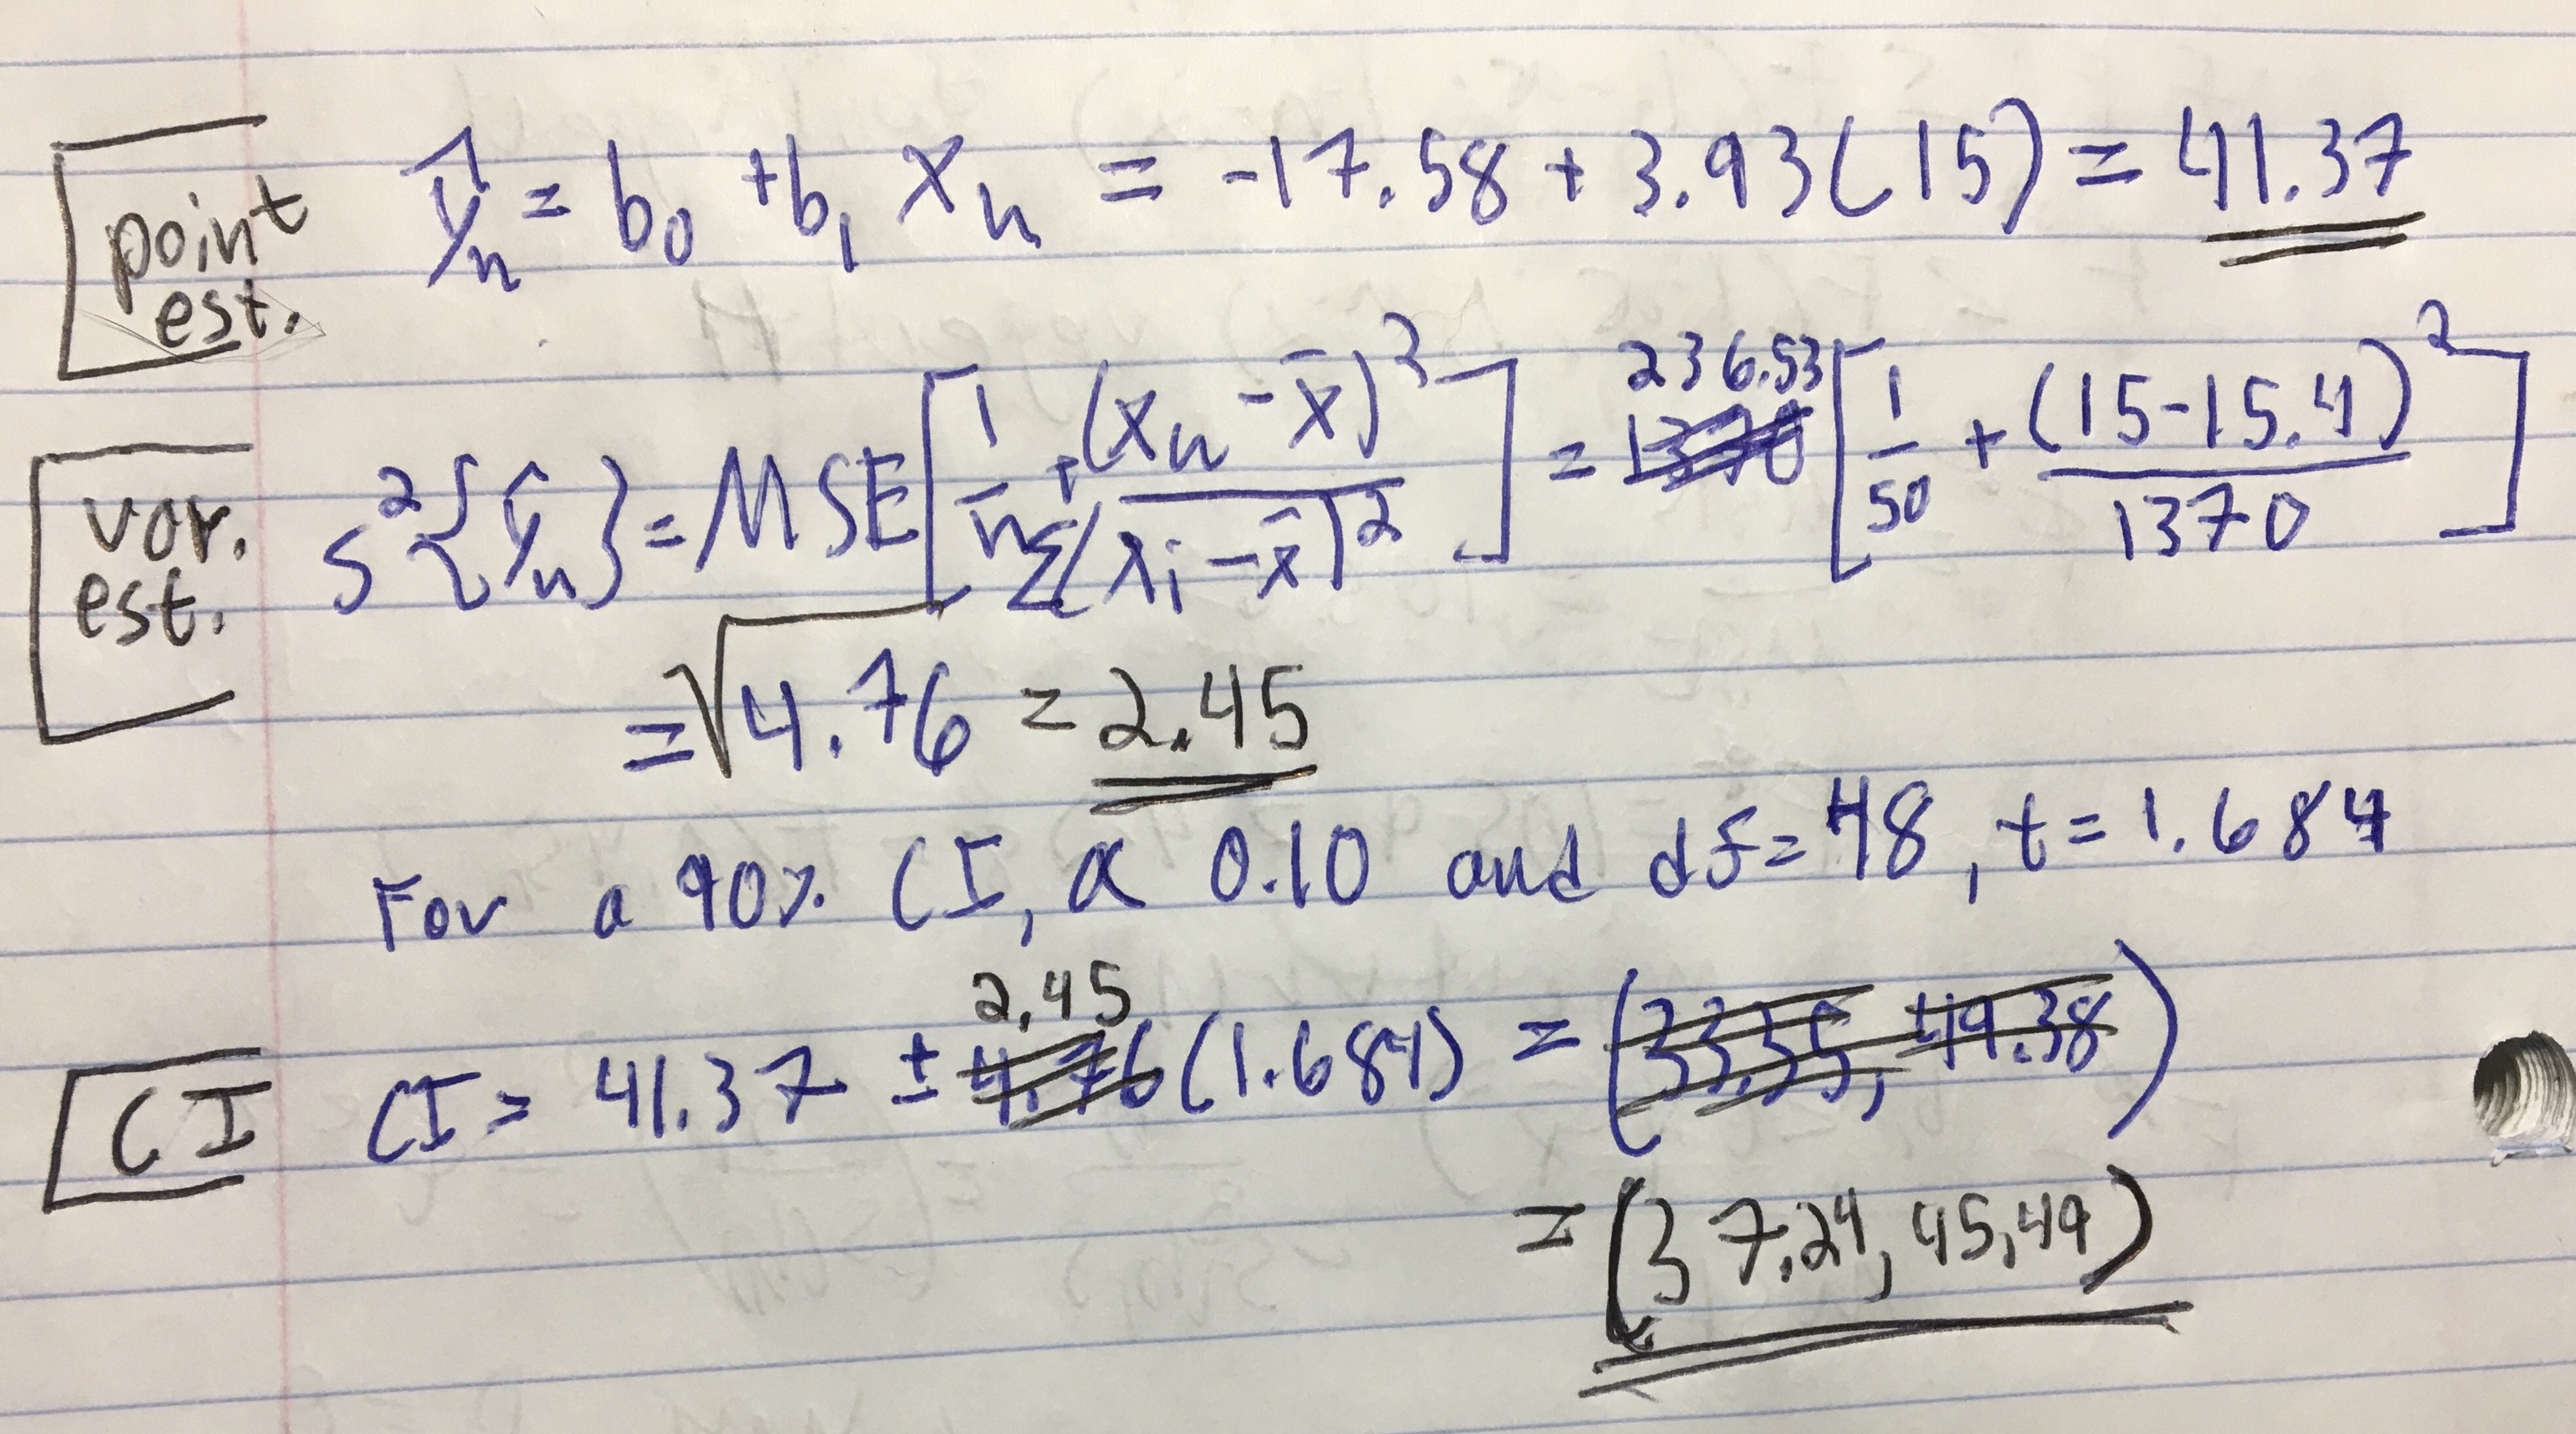 point est.
Ŷₕ = b₀ + b₁ Xₕ = -17.58 + 3.93(15) = 41.37
var. est.
s²{Ŷₕ} = MSE[1/n + (Xₕ - X̄)²/Σ(Xᵢ - X̄)²] = 236.53 [1/50 + (15-15.4)²/1370]
= √4.76 = 2.45
For a 90% CI, α 0.10 and df = 48, t = 1.684
CI
CI = 41.37 ± 2.45 (1.684) = (33.35, 49.38)
= (37.24, 45.49)